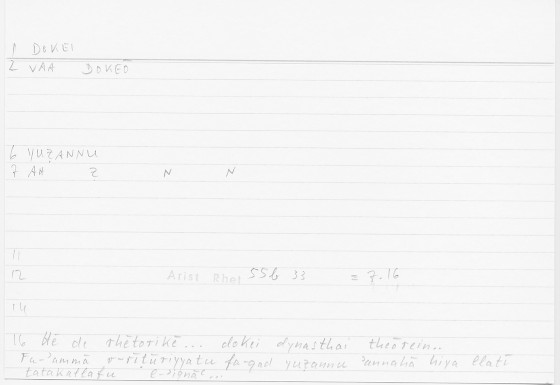 1 DOKEI
2 VAA DOKEŌ
6 YUẒANNU
7 AH Ẓ N N
11
12 Arist Rhet 55b 33 = 7.16
14
16 Hē de rhētorikē... dokei dynasthai theōrein..
Fa-ʾammā r-rīṭūriyyatu fa-qad yuẓannu ʾannahā hiya llatī
tatakallafu